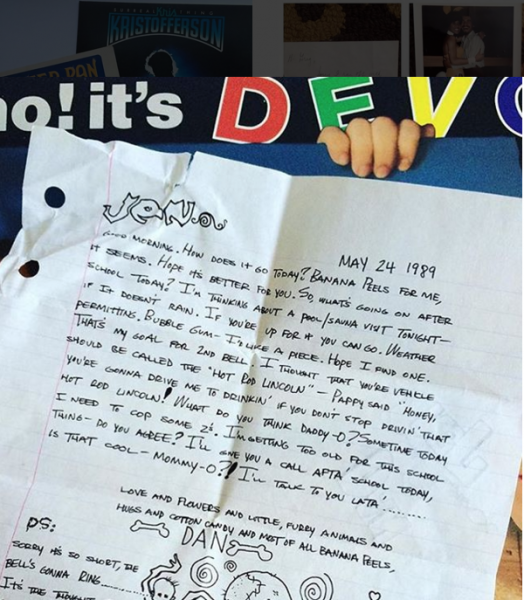 KRISTOFFERSON
PAN
no! it's DEVO
JEN
MAY 24 1989
GOOD MORNING. HOW DOES IT GO TODAY? BANANA PEELS FOR ME,
IT SEEMS. HOPE IT'S BETTER FOR YOU. SO, WHAT'S GOING ON AFTER
SCHOOL TODAY? I'M THINKING ABOUT A POOL/SAUNA VISIT TONIGHT—
IF IT DOESN'T RAIN. IF YOU'RE UP FOR IT YOU CAN GO. WEATHER
PERMITTING. BUBBLE GUM— I'D LIKE A PIECE. HOPE I FIND ONE.
THAT'S MY GOAL FOR 2ND BELL. I THOUGHT THAT YOU'RE VEHICLE
SHOULD BE CALLED THE "HOT ROD LINCOLN" — PAPPY SAID "HONEY,
YOU'RE GONNA DRIVE ME TO DRINKIN' IF YOU DON'T STOP DRIVIN' THAT
HOT ROD LINCOLN! WHAT DO YOU THINK DADDY-O? SOMETIME TODAY
I NEED TO COP SOME Z's. I'M GETTING TOO OLD FOR THIS SCHOOL
THING— DO YOU AGREE? I'LL GIVE YOU A CALL AFTA' SCHOOL TODAY,
IS THAT COOL— MOMMY-O?! I'LL TALK TO YOU LATA'.........
LOVE AND FLOWERS AND LITTLE, FURRY ANIMALS AND
HUGS AND COTTON CANDY AND MOST OF ALL BANANA PEELS,
DAN
PS:
SORRY IT'S SO SHORT, THE
BELL'S GONNA RING......
IT'S THE THOUGHT